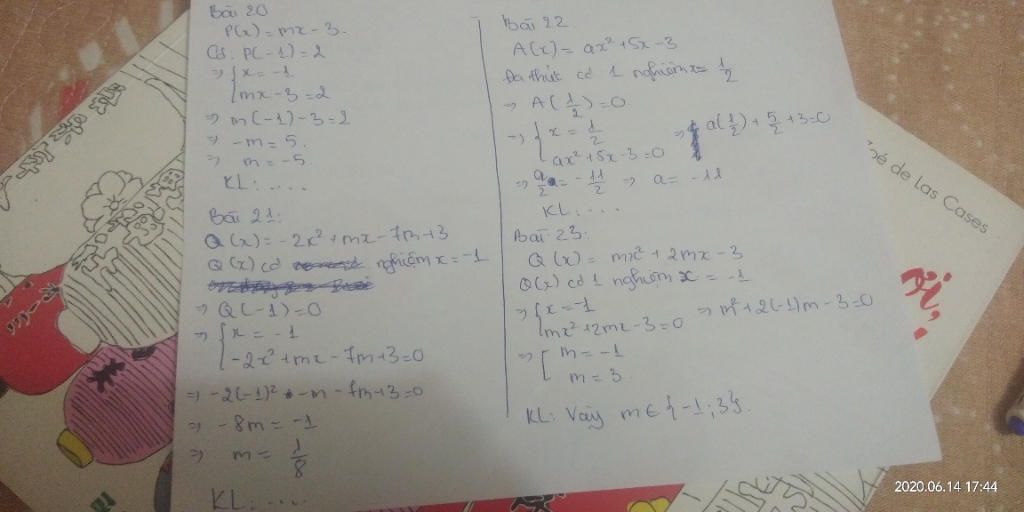 Bài 20
P(x) = mx - 3.
Có: P(-1) = 2
⇒ { x = -1
mx - 3 = 2
⇒ m(-1) - 3 = 2
⇒ -m = 5.
⇒ m = -5.
KL: ....
Bài 21:
Q(x) = -2x² + mx - 7m + 3
Q(x) có nghiệm x = -1
⇒ Q(-1) = 0
⇒ { x = -1
-2x² + mx - 7m + 3 = 0
⇒ -2(-1)² - m - 7m + 3 = 0
⇒ -8m = -1
⇒ m = 1/8
KL: ....
Bài 22
A(x) = ax² + 5x - 3
Đa thức có 1 nghiệm x = 1/2
⇒ A(1/2) = 0
⇒ { x = 1/2
ax² + 5x - 3 = 0
⇒ a(1/2) + 5/2 + 3 = 0
⇒ a/2 = -11/2 ⇒ a = -11
KL: ...
Bài 23:
Q(x) = mx² + 2mx - 3
Q(x) có 1 nghiệm x = -1
⇒ { x = -1
mx² + 2mx - 3 = 0 ⇒ m² + 2(-1)m - 3 = 0
⇒ [ m = -1
m = 3
KL: Vậy m ∈ {-1; 3}.
de Las Cases
2020.06.14 17:44